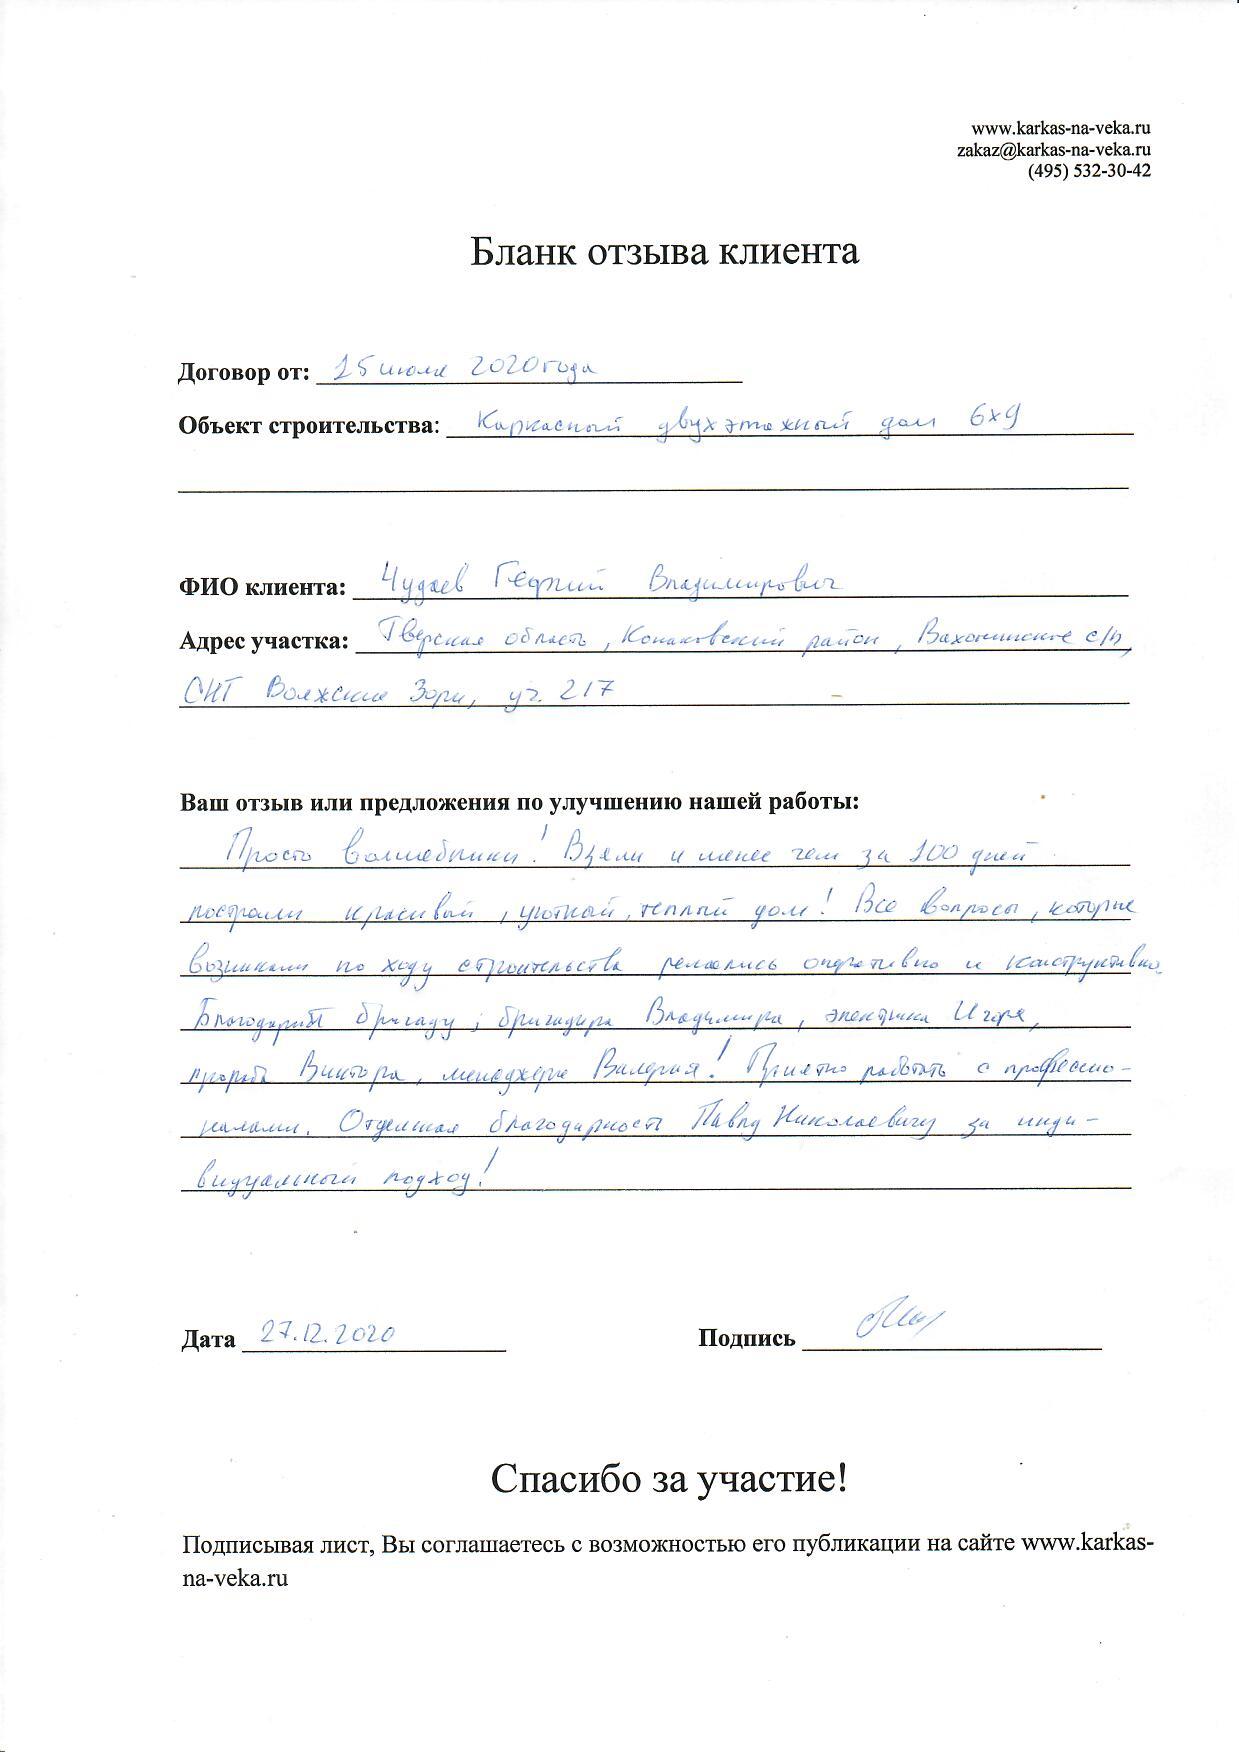 www.karkas-na-veka.ru
zakaz@karkas-na-veka.ru
(495) 532-30-42
Бланк отзыва клиента
Договор от: 25 июля 2020 года
Объект строительства: Каркасный двухэтажный дом 6х9
ФИО клиента: Чудаев Георгий Владимирович
Адрес участка: Тверская область, Конаковский район, Вахонинское с/п,
СНТ Волжские Зори, уч. 217
Ваш отзыв или предложения по улучшению нашей работы:
Просто волшебники! Взяли и менее чем за 100 дней
построили красивый, уютный, теплый дом! Все вопросы, которые
возникали по ходу строительства решались оперативно и конструктивно.
Благодарит бригаду, бригадира Владимира, электрика Игоря,
прораба Виктора, менеджера Валерия! Приятно работать с професси-
налами. Отдельная благодарность Павлу Николаевичу за инди-
видуальный подход!
Дата 27.12.2020 Подпись
Спасибо за участие!
Подписывая лист, Вы соглашаетесь с возможностью его публикации на сайте www.karkas-
na-veka.ru